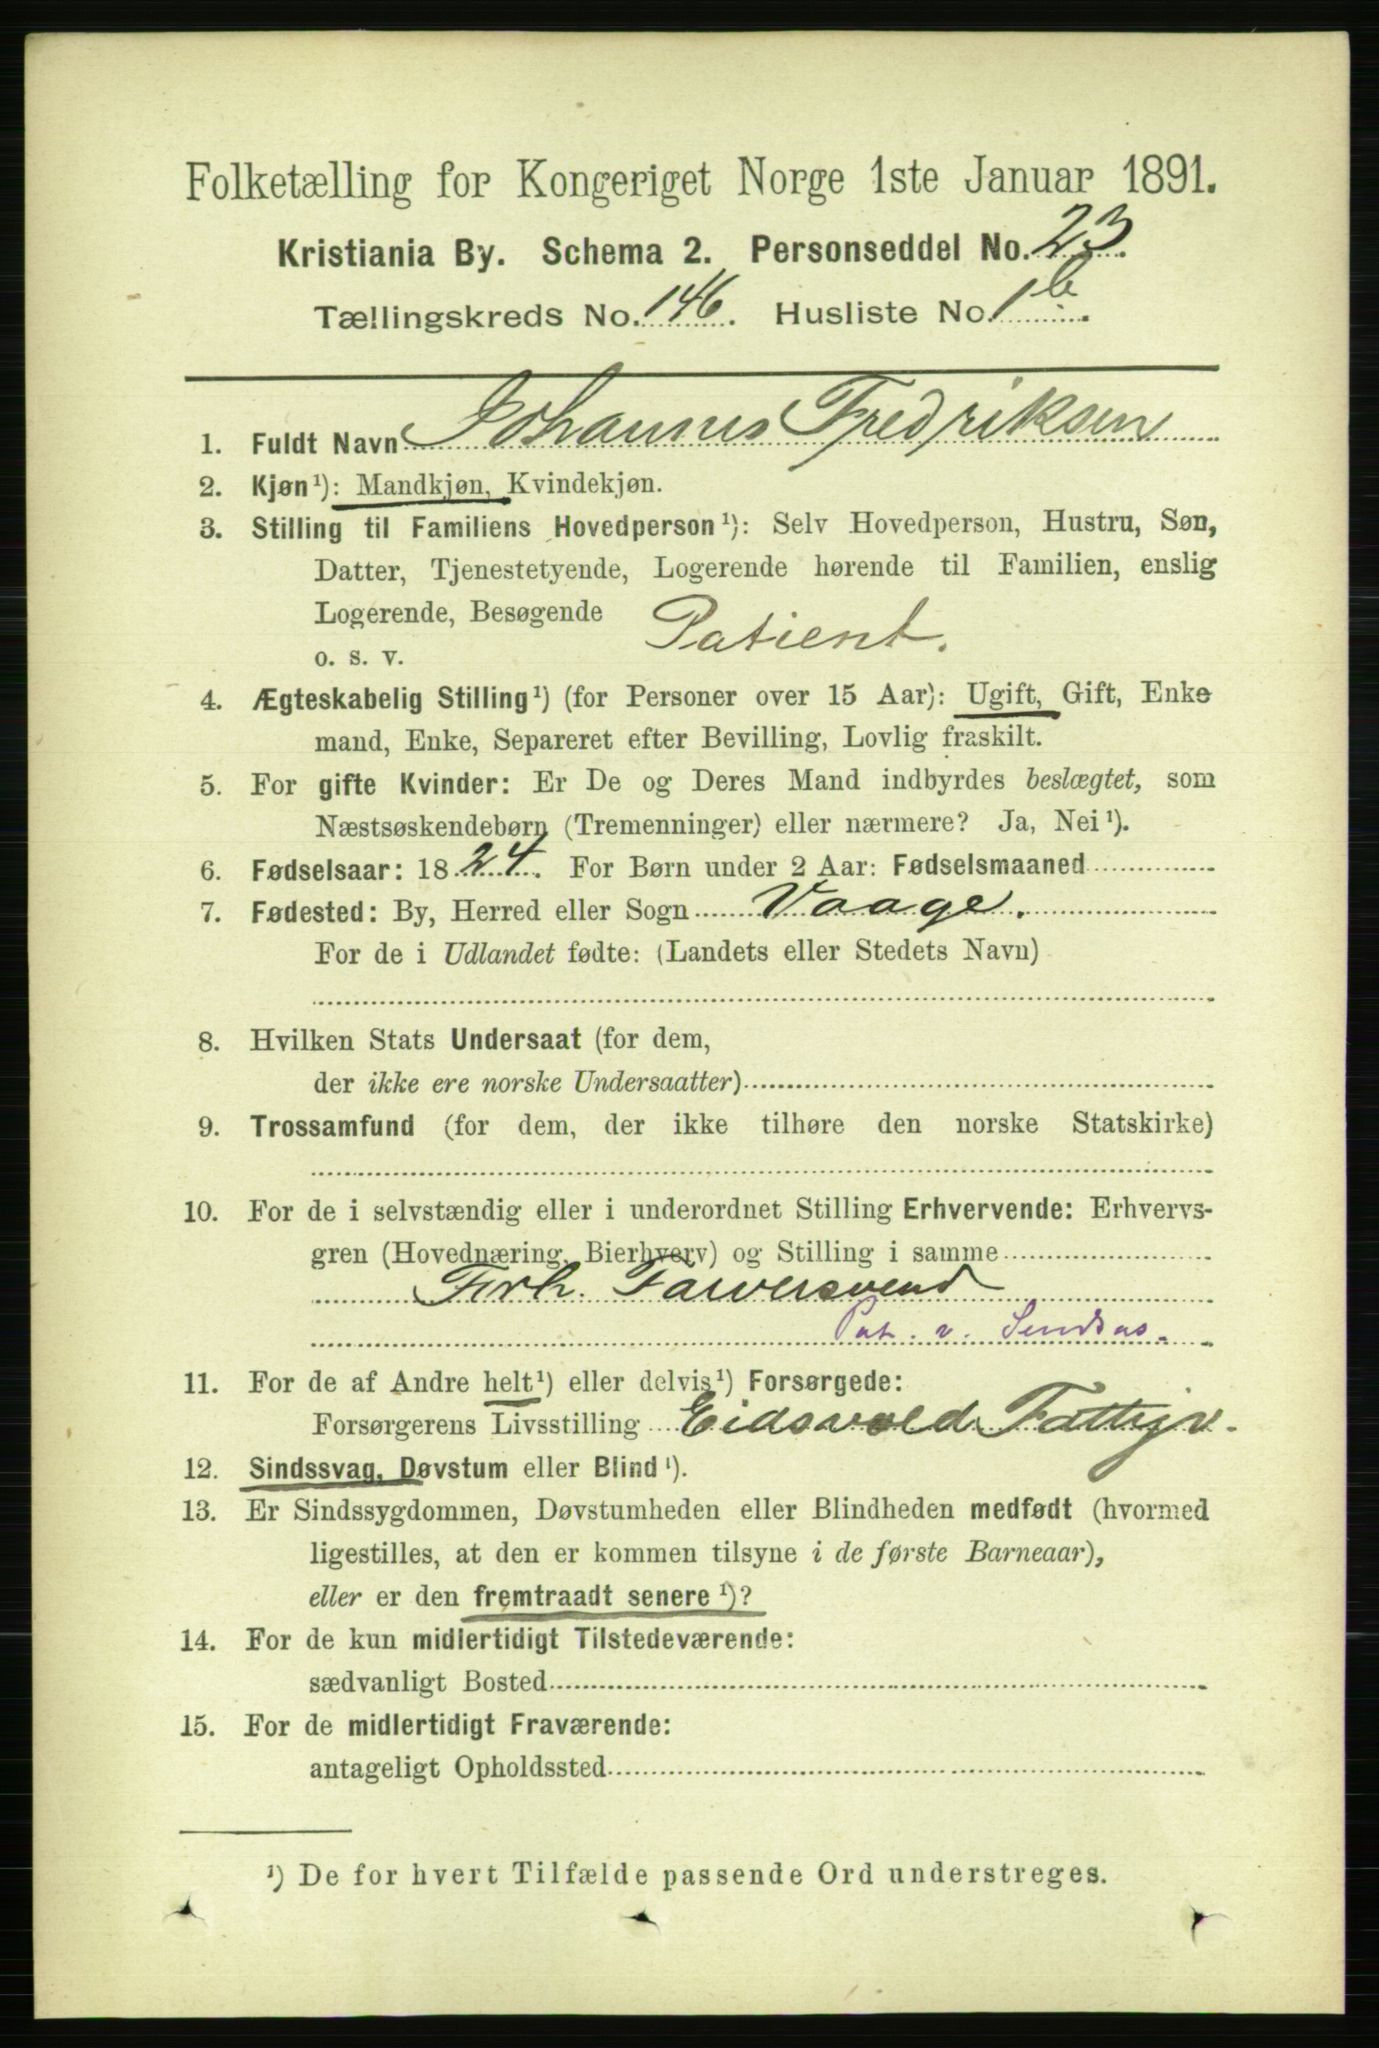 Folketælling for Kongeriget Norge 1ste Januar 1891.
Kristiania By. Schema 2. Personseddel No. 23.
Tællingskreds No. 146. Husliste No. 1b.
1. Fuldt Navn Johannes Fredriksen
2. Kjøn¹): Mandkjøn, Kvindekjøn.
3. Stilling til Familiens Hovedperson¹): Selv Hovedperson, Hustru, Søn,
Datter, Tjenestetyende, Logerende hørende til Familien, enslig
Logerende, Besøgende
o. s. v. Patient.
4. Ægteskabelig Stilling¹) (for Personer over 15 Aar): Ugift, Gift, Enke
mand, Enke, Separeret efter Bevilling, Lovlig fraskilt.
5. For gifte Kvinder: Er De og Deres Mand indbyrdes beslægtet, som
Næstsøskendebørn (Tremenninger) eller nærmere? Ja, Nei¹).
6. Fødselsaar: 1824. For Børn under 2 Aar: Fødselsmaaned
7. Fødested: By, Herred eller Sogn Vaage.
For de i Udlandet fødte: (Landets eller Stedets Navn)
8. Hvilken Stats Undersaat (for dem,
der ikke ere norske Undersaatter)
9. Trossamfund (for dem, der ikke tilhøre den norske Statskirke)
10. For de i selvstændig eller i underordnet Stilling Erhvervende: Erhvervs-
gren (Hovednæring, Bierhverv) og Stilling i samme
Frh. Farversvend
Pat. v. Sindsas.
11. For de af Andre helt¹) eller delvis¹) Forsørgede:
Forsørgerens Livsstilling Eidsvold Fattigv.
12. Sindssvag, Døvstum eller Blind¹).
13. Er Sindssygdommen, Døvstumheden eller Blindheden medfødt (hvormed
ligestilles, at den er kommen tilsyne i de første Barneaar),
eller er den fremtraadt senere¹)?
14. For de kun midlertidigt Tilstedeværende:
sædvanligt Bosted
15. For de midlertidigt Fraværende:
antageligt Opholdssted
¹) De for hvert Tilfælde passende Ord understreges.